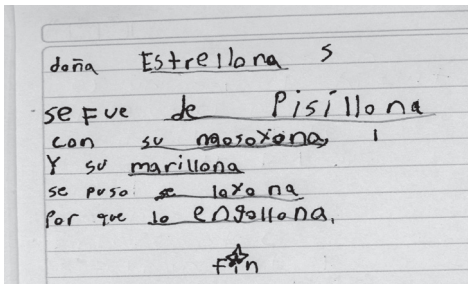 doña Estrellona s
se Fue de Pisillona
con su mosoxona,
Y su marillona
se puso se loxona
Por que lo engollona.
fin